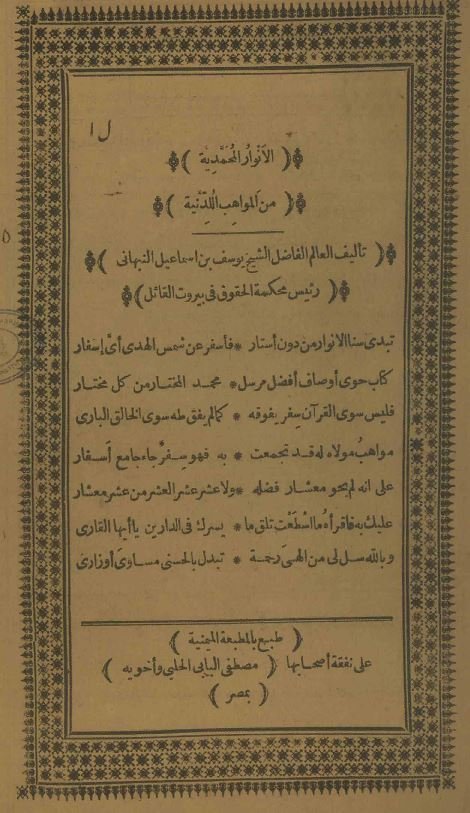 ل ١
(الأَنْوَارُ المُحَمَّدِيَّة)
(من المَوَاهِبِ اللَّدُنِّيَة)
(تأليف العالم الفاضل الشيخ يوسف بن اسماعيل النبهانى)
(رئيس محكمة الحقوق فى بيروت القائل)
تبدى سنا الانوار من دون أستار * فأسفر عن شمس الهدى أىّ إسفار
كتاب حوى أوصاف أفضل مرسل * محمد المختار من كل مختار
فليس سوى القرآن سِفر يفوقه * كما لم يفق طه سوى الخالق البارى
مواهبُ مولاه له قد تجمعت * به فهو سِفرٌ جاء جامع أسفار
على انه لم يحو معشار فضله * ولا عشر عشر العشر من عشر معشار
عليك به فاقرأه ما اسْطَعْتَ تلق ما * يسرك فى الدارين يا أيها القارى
وبالله سل لى من الهىَ رحمة * تبدل بالحسنى مساوىَ أوزارى
(طبع بالمطبعة الميمنية)
على نفقة أصحابها (مصطفى البابى الحلبى وأخويه)
(بمصر)